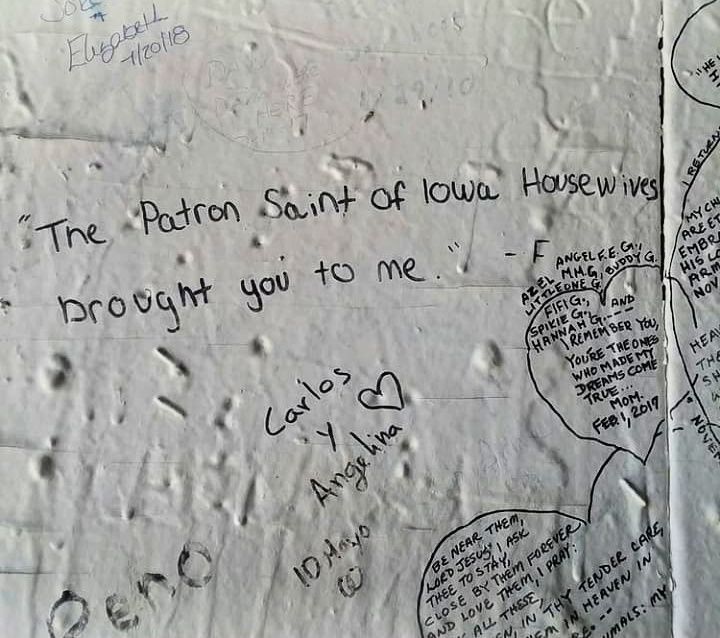 Elizabeth
1/20/18
"The Patron Saint of Iowa Housewives
brought you to me." - F
ANGEL F.E.G.,
AZEL M.H.G., BUDDY G.,
LITTLEONE G.,
FIFI G.,
SPIKIE G., AND
HANNAH G.----
I REMEMBER YOU,
YOU'RE THE ONES
WHO MADE MY
DREAMS COME
TRUE...
MOM.
FEB. 1, 2017
Carlos
y
Angelina
10 Mayo
Deno
BE NEAR THEM,
LORD JESUS, I ASK
THEE TO STAY,
CLOSE BY THEM FOREVER
AND LOVE THEM, I PRAY:
ALL THESE
IN THY TENDER CARE,
IN HEAVEN IN
"HE
I RETURN
MY CH
ARE E
EMBR
HIS LO
ARM
NOV
HEA
TH
SH
NOVE